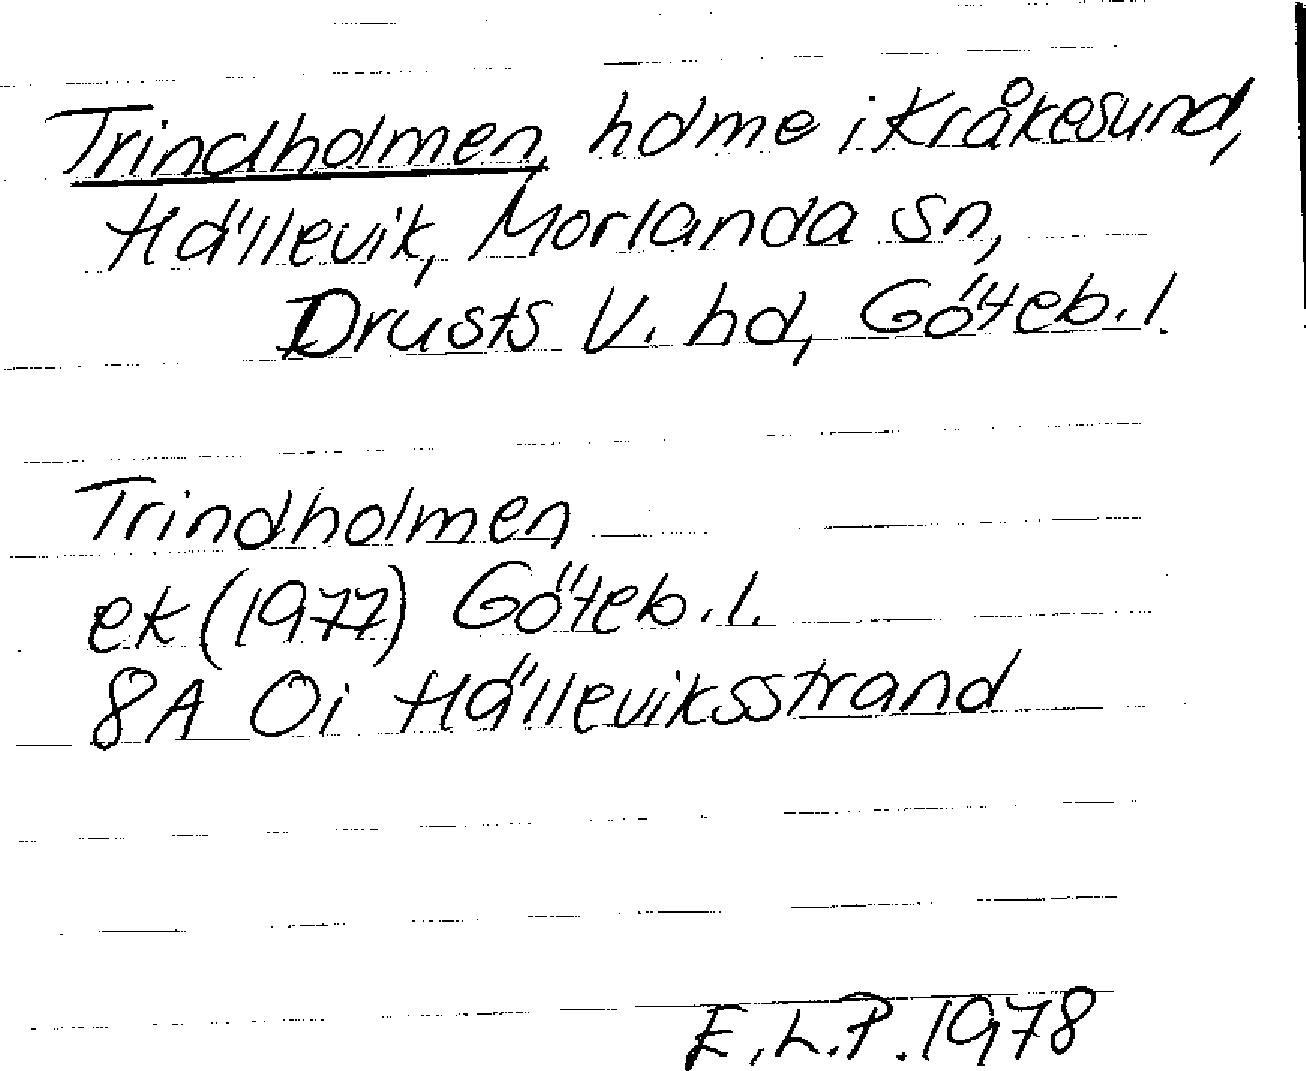 Trindholmen, holme i Kråkesund,
Hällevik, Morlanda sn,
Drusts V. hd, Göteb. l.
Trindholmen
ek (1977) Göteb. l.
8A 0i Hälleviksstrand
E. L. P. 1978